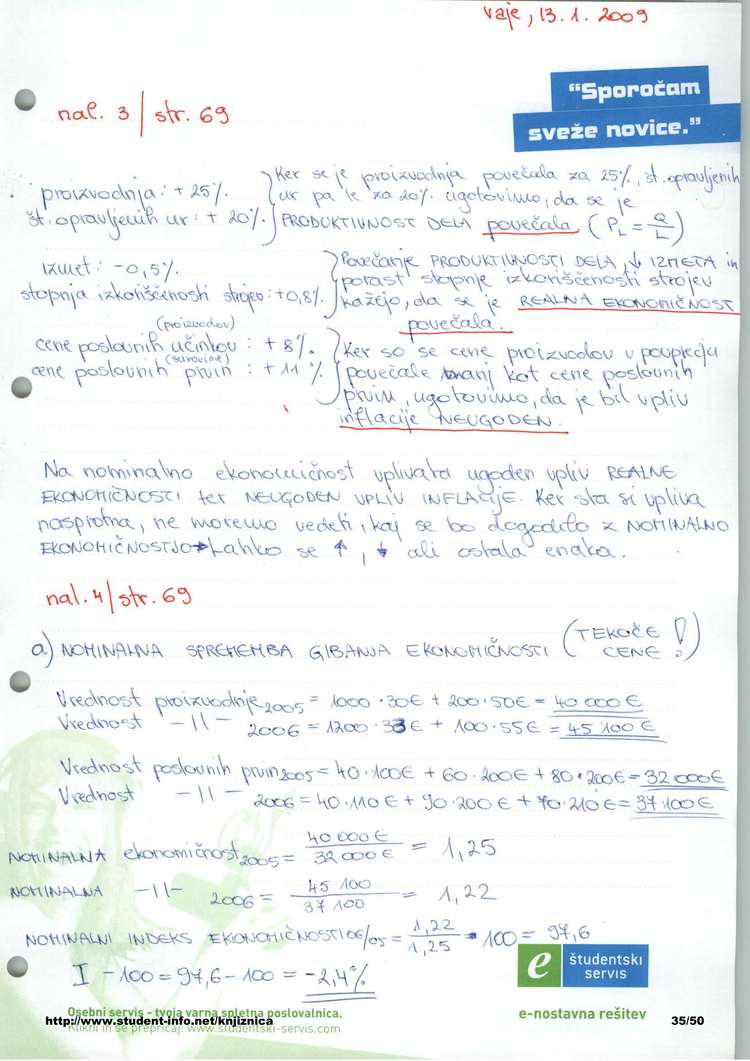 vaje, 13. 1. 2009
"Sporočam
sveže novice."
nal. 3 / str. 69
proizvodnja: + 25%.
št. opravljenih ur: + 20%.
Ker se je proizvodnja povečala za 25%, št. opravljenih
ur pa le za 20%. ugotovimo, da se je
PRODUKTIVNOST DELA povečala (PL = Q/L)
izmet: -0,5%.
stopnja izkoriščenosti strojev: +0,8%.
Povečanje PRODUKTIVNOSTI DELA, ↓ IZMETA in
porast stopnje izkoriščenosti strojev
kažejo, da se je REALNA EKONOMIČNOST
povečala.
(proizvodov)
cene poslovnih učinkov : + 8%.
(surovine)
cene poslovnih prvin : + 11 %.
Ker so se cene proizvodov v povprečju
povečale manj kot cene poslovnih
prvin, ugotovimo, da je bil vpliv
inflacije NEUGODEN.
Na nominalno ekonomičnost vplivata ugoden vpliv REALNE
EKONOMIČNOSTI ter NEUGODEN VPLIV INFLACIJE. Ker sta si vpliva
nasprotna, ne moremo vedeti, kaj se bo dogodilo z NOMINALNO
EKONOMIČNOSTJO → Lahko se ↑, ↓ ali ostala enaka.
nal. 4 / str. 69
a) NOMINALNA SPREMEMBA GIBANJA EKONOMIČNOSTI (TEKOČE CENE !)
Vrednost proizvodnje2005 = 1000 · 30€ + 200 · 50€ = 40 000 €
Vrednost -||- 2006 = 1200 · 33€ + 100 · 55€ = 45 100 €
Vrednost poslovnih prvin2005 = 40 · 100€ + 60 · 200€ + 80 · 200€ = 32 000€
Vrednost -||- 2006 = 40 · 110€ + 90 · 200 € + 70 · 210€ = 37 100 €
NOMINALNA ekonomičnost2005 = 40 000 € / 32 000 € = 1,25
NOMINALNA -||- 2006 = 45 100 / 37 100 = 1,22
NOMINALNI INDEKS EKONOMIČNOSTI06/05 = 1,22 / 1,25 · 100 = 97,6
I - 100 = 97,6 - 100 = -2,4%
e študentski
servis
Osebni servis - tvoja varna spletna poslovalnica.
e-nostavna rešitev
http://www.student-info.net/knjiznica
35/50
Klikni in se prepričaj: www.studentski-servis.com